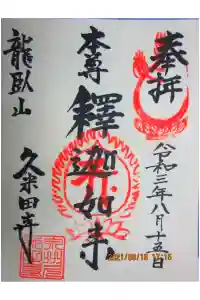 奉拝
令和三年八月十五日
本尊
釋迦如来
龍臥山
久米田寺
2021/08/18 17:16